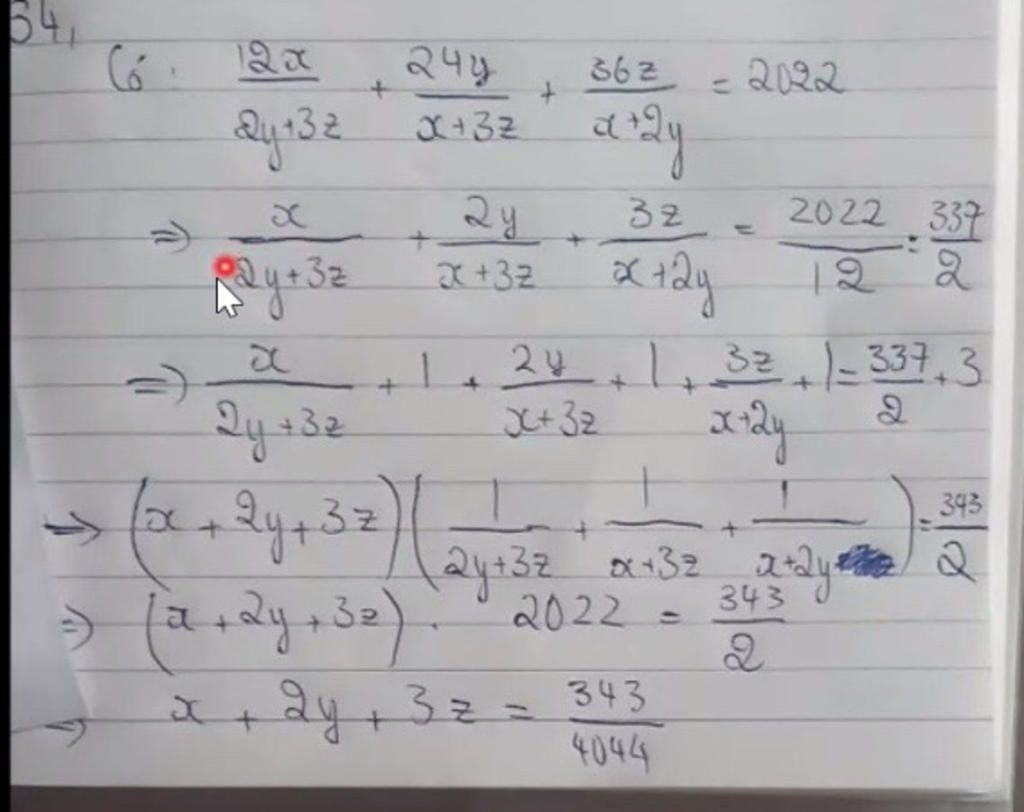 54,
Có: 12x/(2y+3z) + 24y/(x+3z) + 36z/(x+2y) = 2022
⇒ x/(2y+3z) + 2y/(x+3z) + 3z/(x+2y) = 2022/12 = 337/2
⇒ x/(2y+3z) + 1 + 2y/(x+3z) + 1 + 3z/(x+2y) + 1 = 337/2 + 3
⇒ (x + 2y + 3z)(1/(2y+3z) + 1/(x+3z) + 1/(x+2y)) = 343/2
⇒ (x + 2y + 3z) . 2022 = 343/2
⇒ x + 2y + 3z = 343/4044